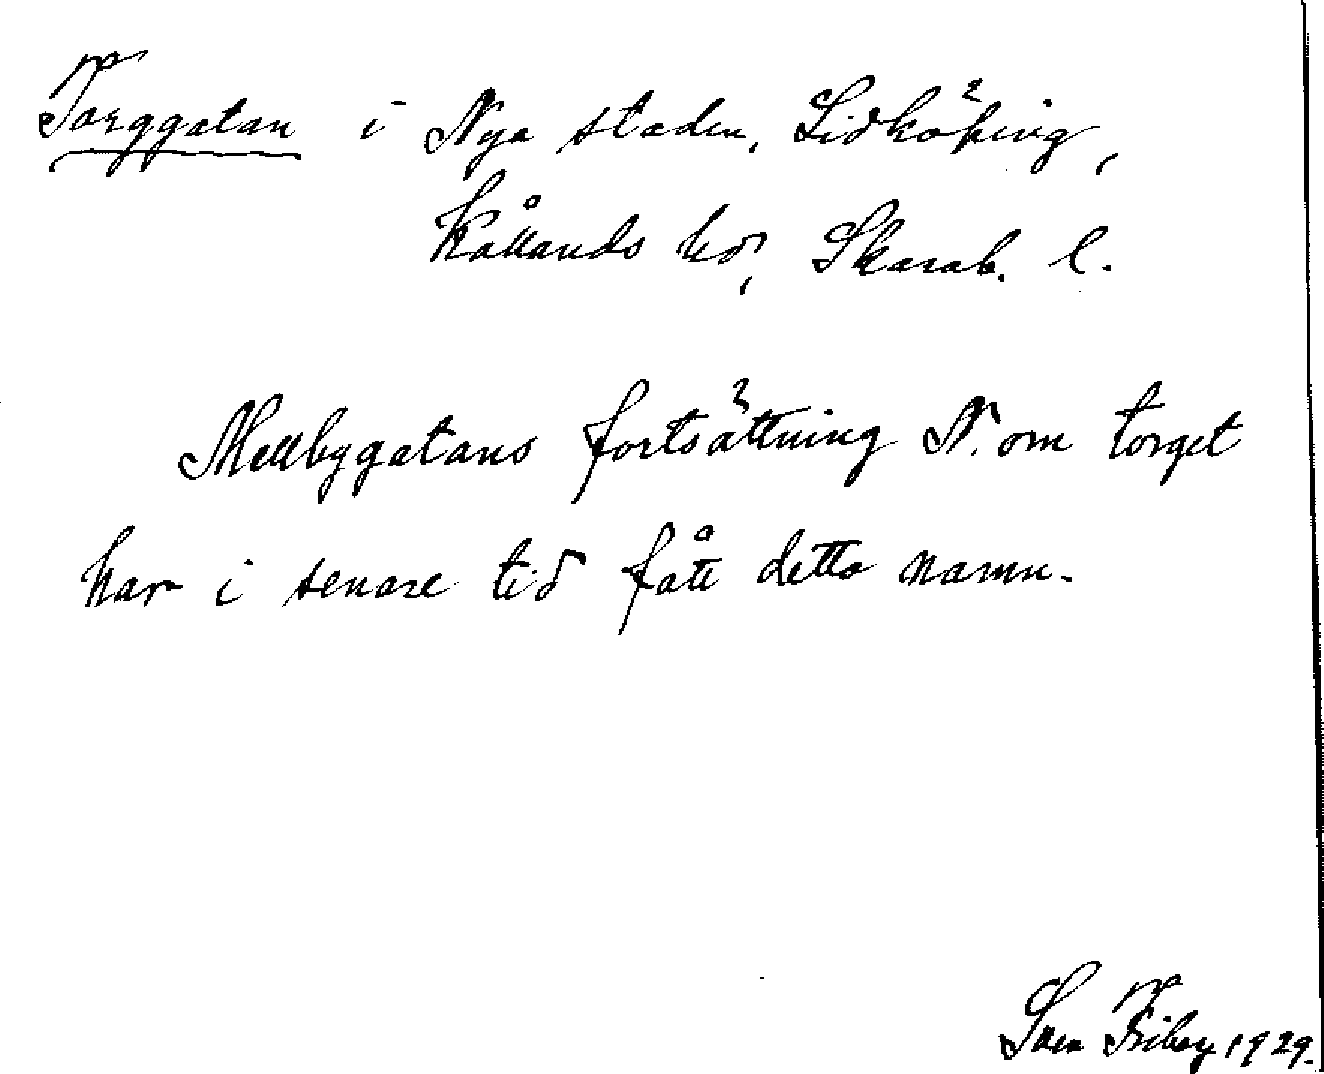 Torggatan i Nya staden, Lidköping,
Kållands hd, Skarab. l.
Mellbygatans fortsättning N. om torget
har i senare tid fått detta namn.
Sven Friberg 1929.